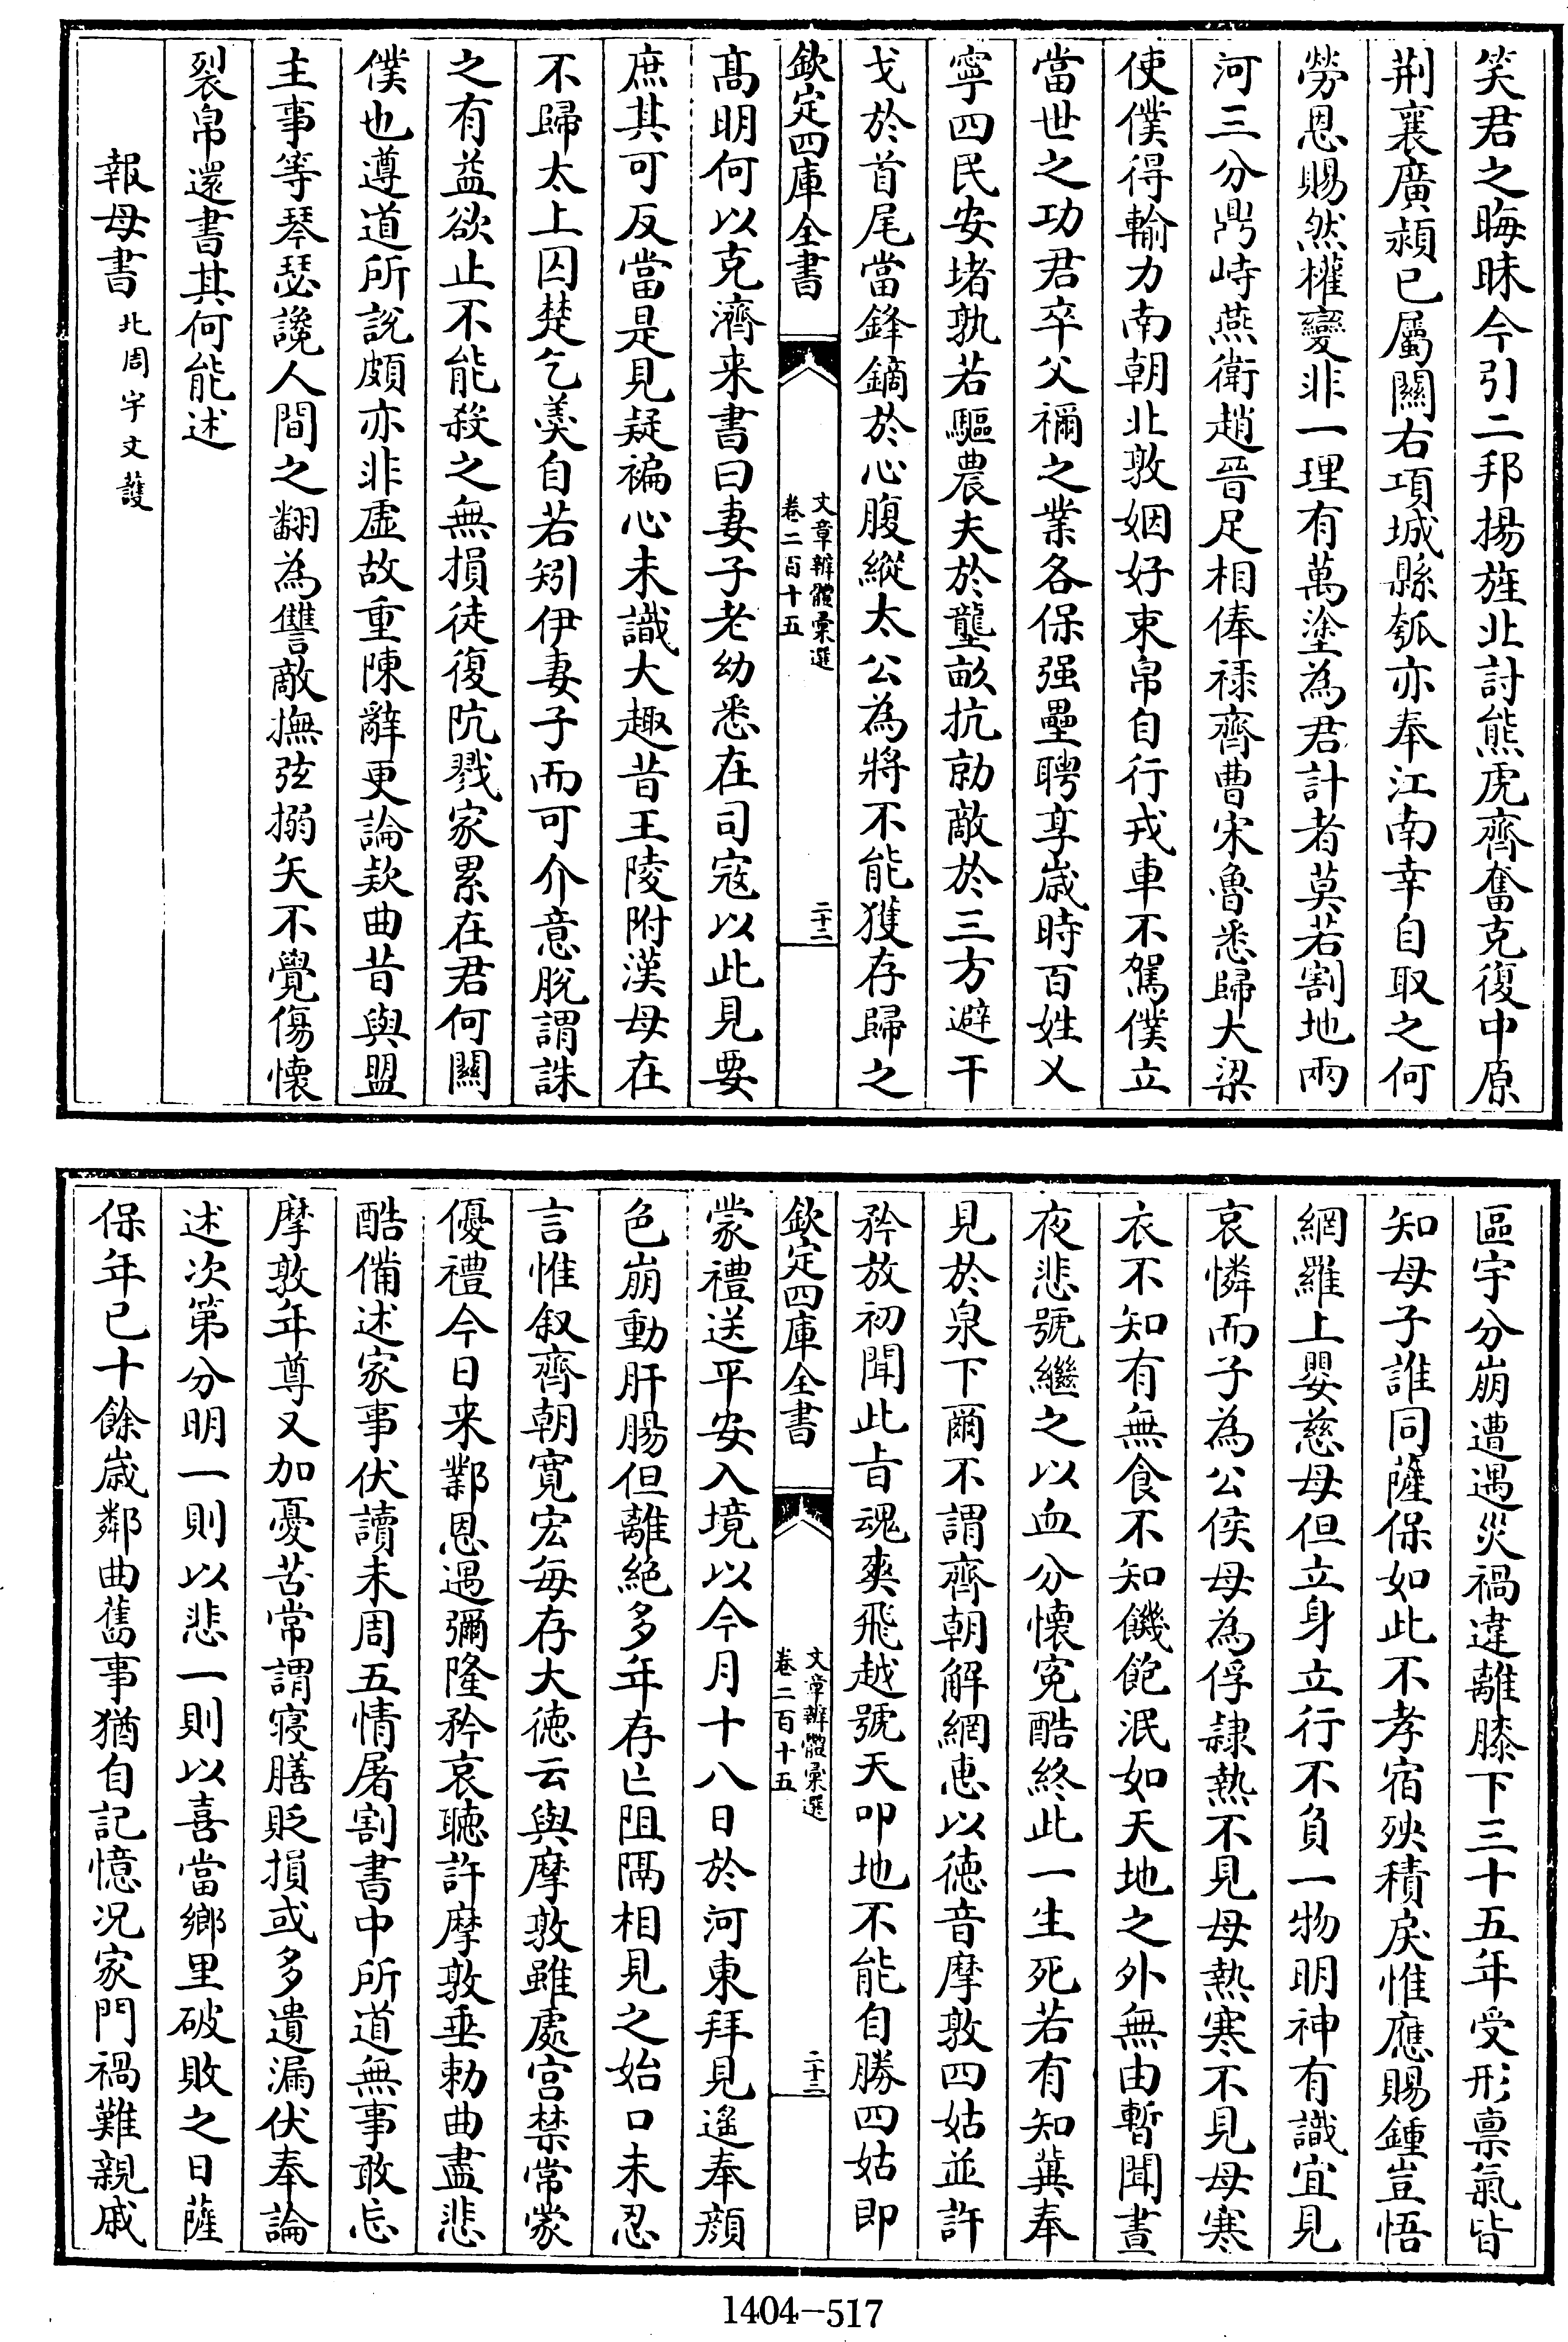 笑君之晦昧今引二邦揚旌北討熊虎齊奮克復中原
荆襄廣潁已屬關右項城縣瓠亦奉江南幸自取之何
勞恩賜然權變非一理有萬塗為君計者莫若割地兩
河三分鼎峙燕衛趙晉足相俸禄齊曹宋魯悉歸大梁
使僕得輸力南朝北敦姻好束帛自行戎車不駕僕立
當世之功君卒父禰之業各保强壘聘享歲時百姓乂
寧四民安堵孰若驅農夫於壟畝抗勍敵於三方避干
戈於首尾當鋒鏑於心腹縱太公為將不能獲存歸之
欽定四庫全書
文章辨體彚選
卷二百十五
二十二
髙明何以克濟来書曰妻子老幼悉在司寇以此見要
庶其可反當是見疑褊心未識大趣昔王陵附漢母在
不歸太上囚楚乞羮自若矧伊妻子而可介意脱謂誅
之有益欲止不能殺之無損徒復阬戮家累在君何關
僕也遵道所說頗亦非虛故重陳辭更論欵曲昔與盟
主事等琴瑟讒人間之翻為讐敵撫弦搦矢不覺傷懷
裂帛還書其何能述
報母書北周宇文護
區宇分崩遭遇災禍違離膝下三十五年受形禀氣皆
知母子誰同薩保如此不孝宿殃積戾惟應賜鍾豈悟
網羅上嬰慈母但立身立行不負一物明神有識宜見
哀憐而子為公侯母為俘隸熱不見母熱寒不見母寒
衣不知有無食不知饑飽泯如天地之外無由暫聞晝
夜悲號繼之以血分懷寃酷終此一生死若有知冀奉
見於泉下爾不謂齊朝解網惠以徳音摩敦四姑並許
矜放初聞此㫖魂爽飛越號天叩地不能自勝四姑即
欽定四庫全書
文章辨體彚選
卷二百十五
二十三
蒙禮送平安入境以今月十八日於河東拜見遙奉顔
色崩動肝腸但離絶多年存亡阻隔相見之始口未忍
言惟叙齊朝寛宏每存大徳云與摩敦雖處宫禁常蒙
優禮今日来鄴恩遇彌隆矜哀聽許摩敦垂勅曲盡悲
酷備述家事伏讀未周五情屠割書中所道無事敢忘
摩敦年尊又加憂苦常謂寢膳貶損或多遺漏伏奉論
述次第分明一則以悲一則以喜當鄉里破敗之日薩
保年已十餘歲鄰曲舊事猶自記憶况家門禍難親戚
1404-517